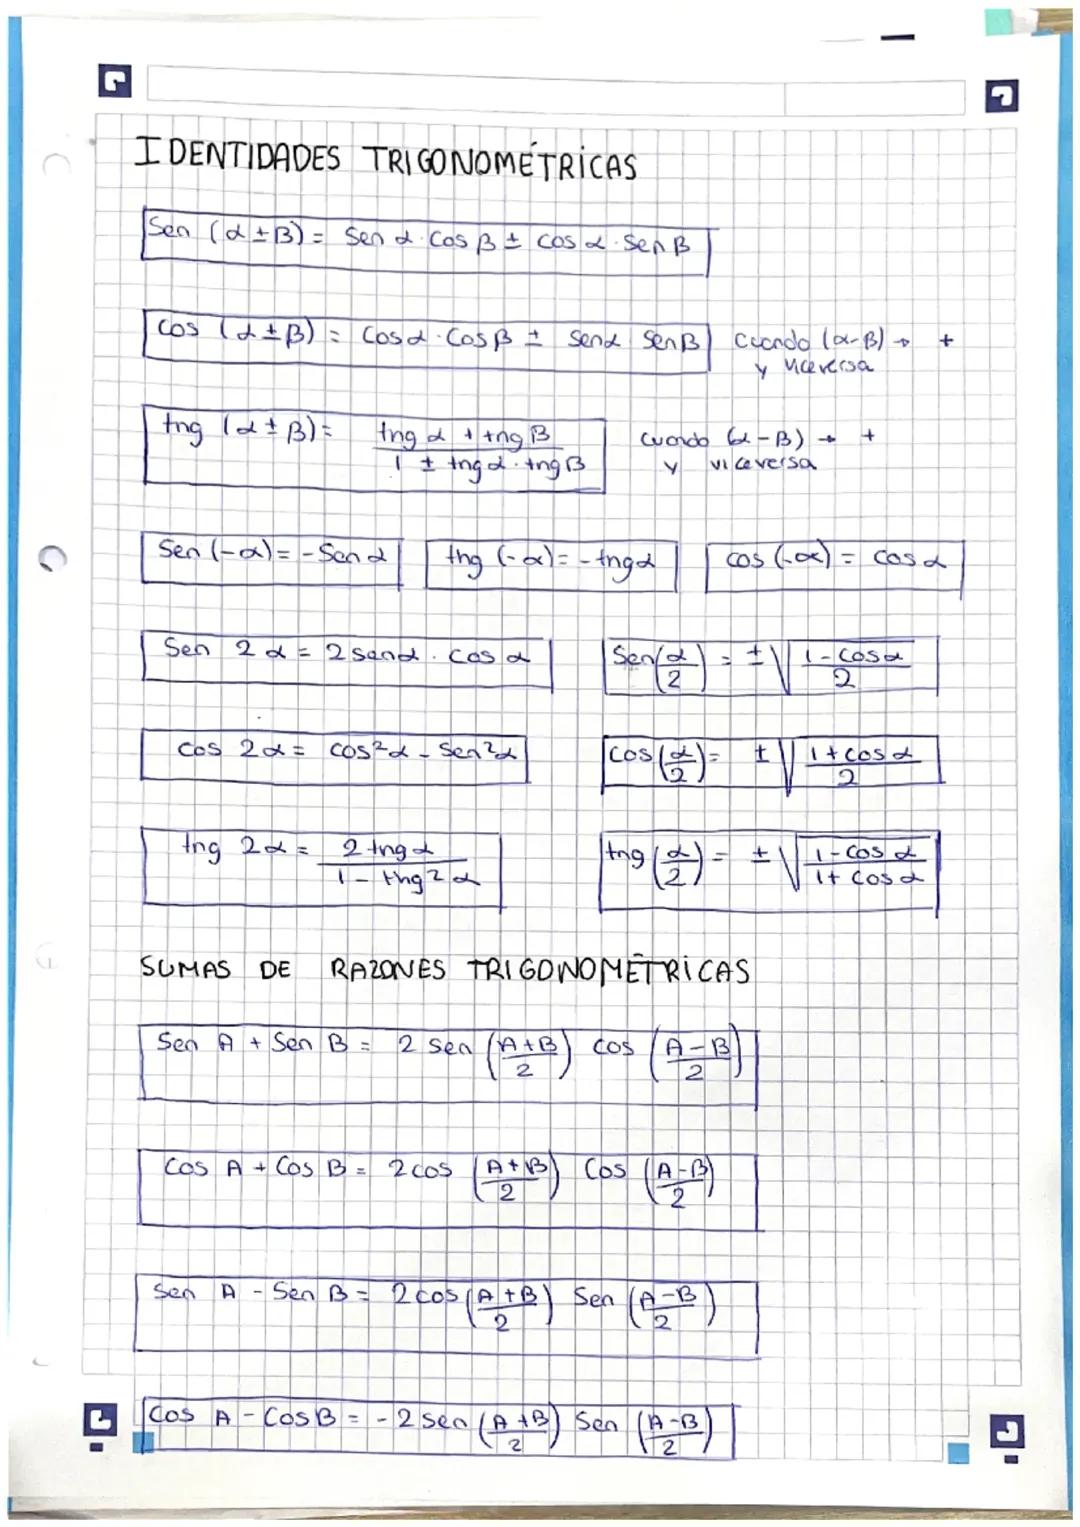 IDENTIDADES TRIGONOMÉTRICAS
Sen (α ± β) = Sen α · Cos β ± cos α · Sen β
Cos (α ± β) = Cos α · Cos β ± Sen α Sen β   Cuando (α-β) → +
y viceversa
tng (α ± β) = tng α + tng β / 1 ± tng α · tng β   Cuando (α-β) → +
y viceversa
Sen (-α) = - Sen α   tng (-α) = - tng α   cos (-α) = cos α
Sen 2α = 2 sen α · cos α   Sen (α/2) = ± √(1 - cos α / 2)
Cos 2α = cos²α - Sen²α   Cos (α/2) = ± √(1 + cos α / 2)
tng 2α = 2 tng α / 1 - tng²α   tng (α/2) = ± √(1 - cos α / 1 + cos α)
SUMAS DE RAZONES TRIGONOMÉTRICAS
Sen A + Sen B = 2 sen (A+B/2) cos (A-B/2)
Cos A + Cos B = 2 cos (A+B/2) Cos (A-B/2)
Sen A - Sen B = 2 cos (A+B/2) Sen (A-B/2)
Cos A - Cos B = -2 sen (A+B/2) Sen (A-B/2)